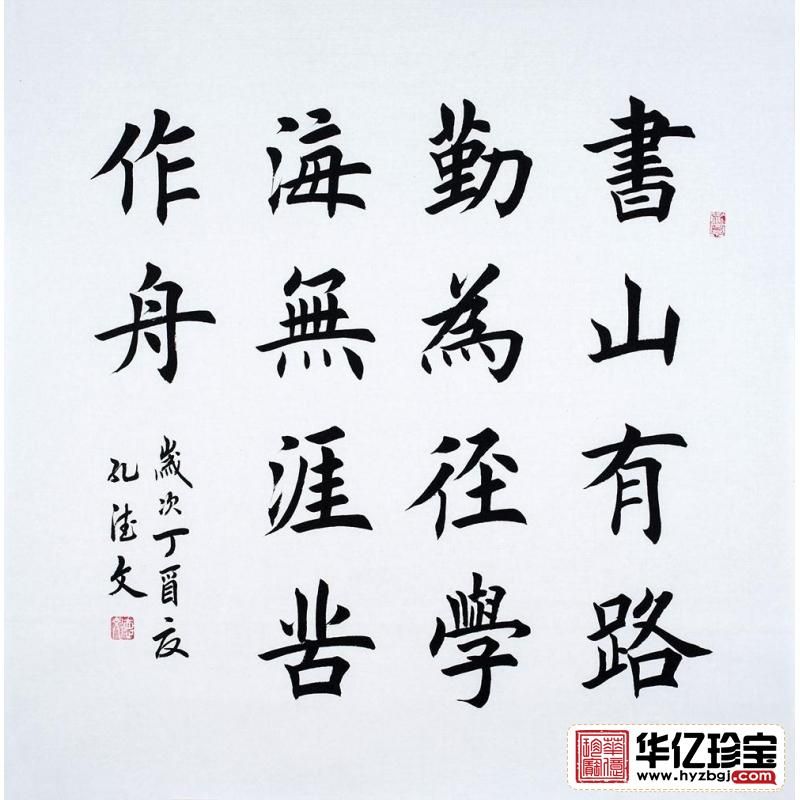 書山有路
勤為徑學
海無涯苦
作舟
歲次丁酉夏
孔德文
华亿珍宝
www.hyzbgj.com